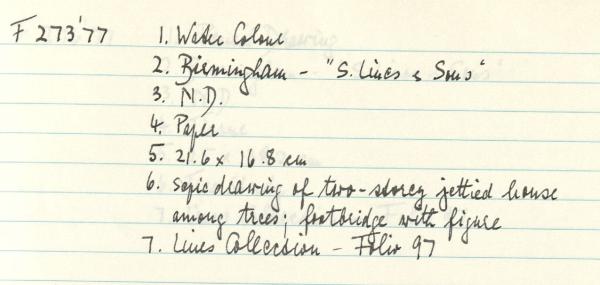 F 273'77 1. Water Colour
2. Birmingham - "S. Lines & Sons"
3. N.D.
4. Paper
5. 21.6 x 16.8 cm
6. sepia drawing of two-storey jettied house
among trees; footbridge with figure
7. Lines Collection - Folio 97